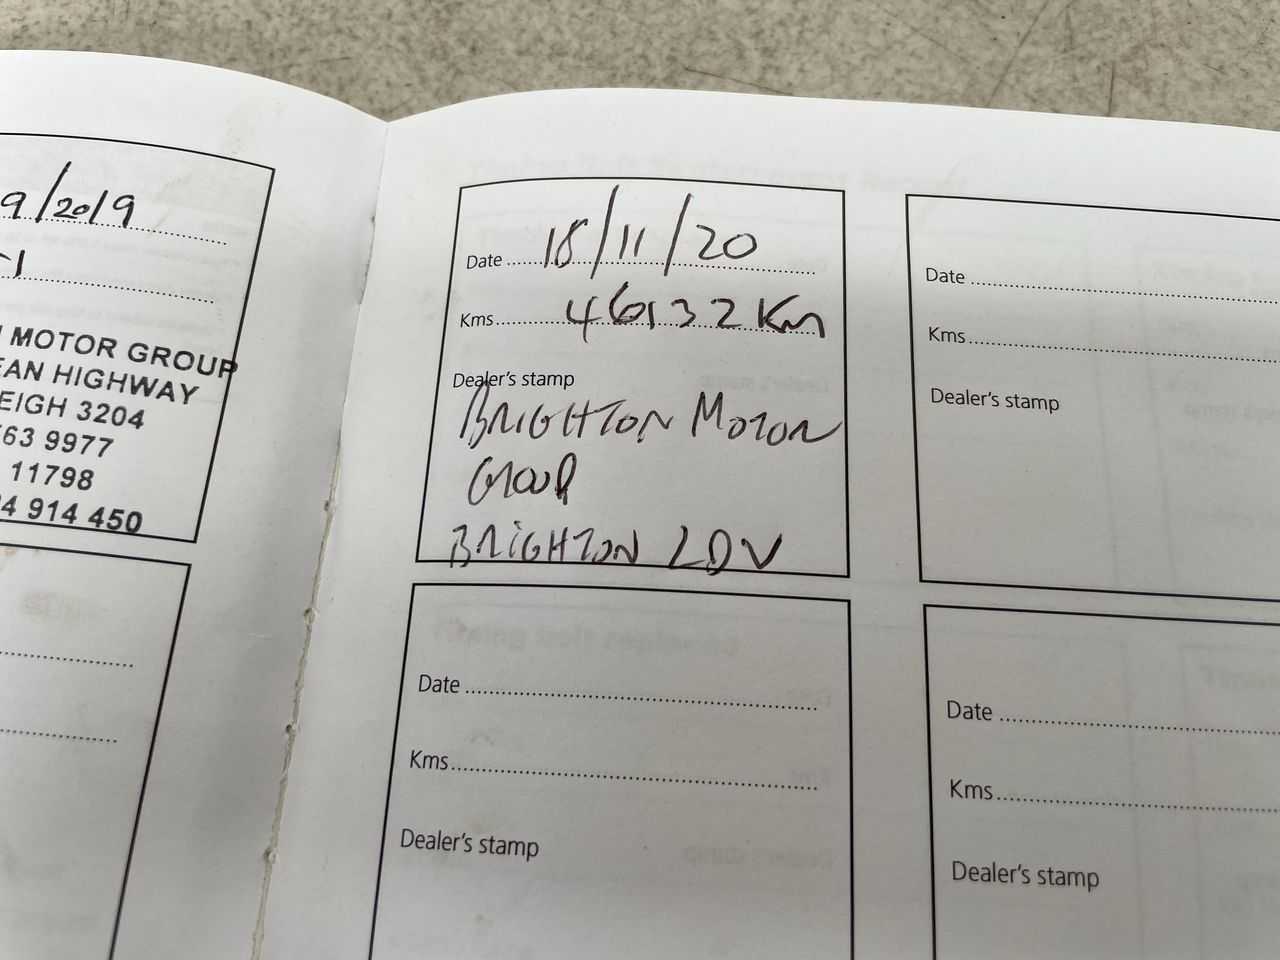 9/2019
MOTOR GROUP
EAN HIGHWAY
EIGH 3204
63 9977
11798
4 914 450
Date 18/11/20
Kms 46132 Km
Dealer's stamp
BRIGHTON MOTOR
GROUP
BRIGHTON LDV
Date
Kms
Dealer's stamp
Date
Kms
Dealer's stamp
Date
Kms
Dealer's stamp